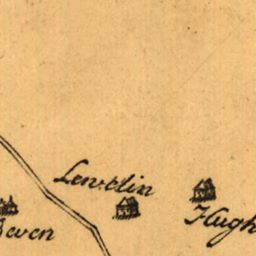 Lewelin
Hugh
Beven